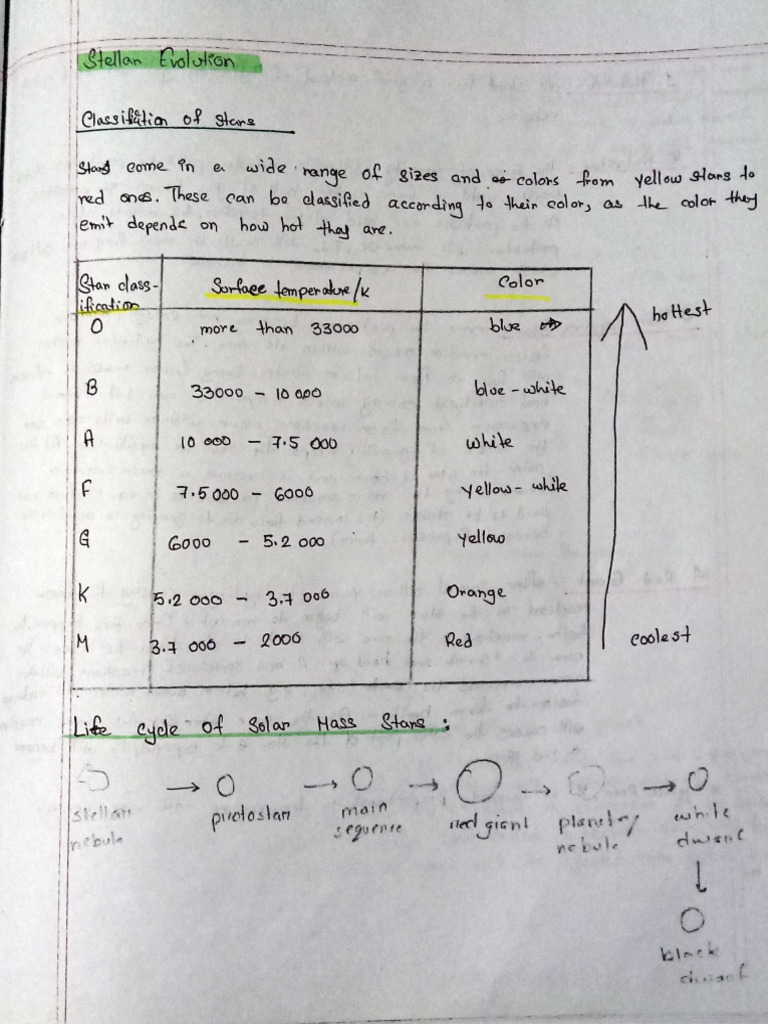 Stellar Evolution
Classification of stars
Stars come in a wide range of sizes and colors from yellow stars to
red ones. These can be classified according to their color, as the color they
emit depends on how hot they are.
Star class- Surface temperature/K Color
ification
O more than 33000 blue
hottest
B 33000 - 10 000 blue-white
A 10 000 - 7.5 000 white
F 7.5 000 - 6000 yellow-white
G 6000 - 5.2 000 yellow
K 5.2 000 - 3.7 000 Orange
M 3.7 000 - 2000 Red
coolest
Life cycle of Solar Mass Stars :
stellar nebula → protostar → main sequence → red giant → planetary nebula → white dwarf
↓
black dwarf